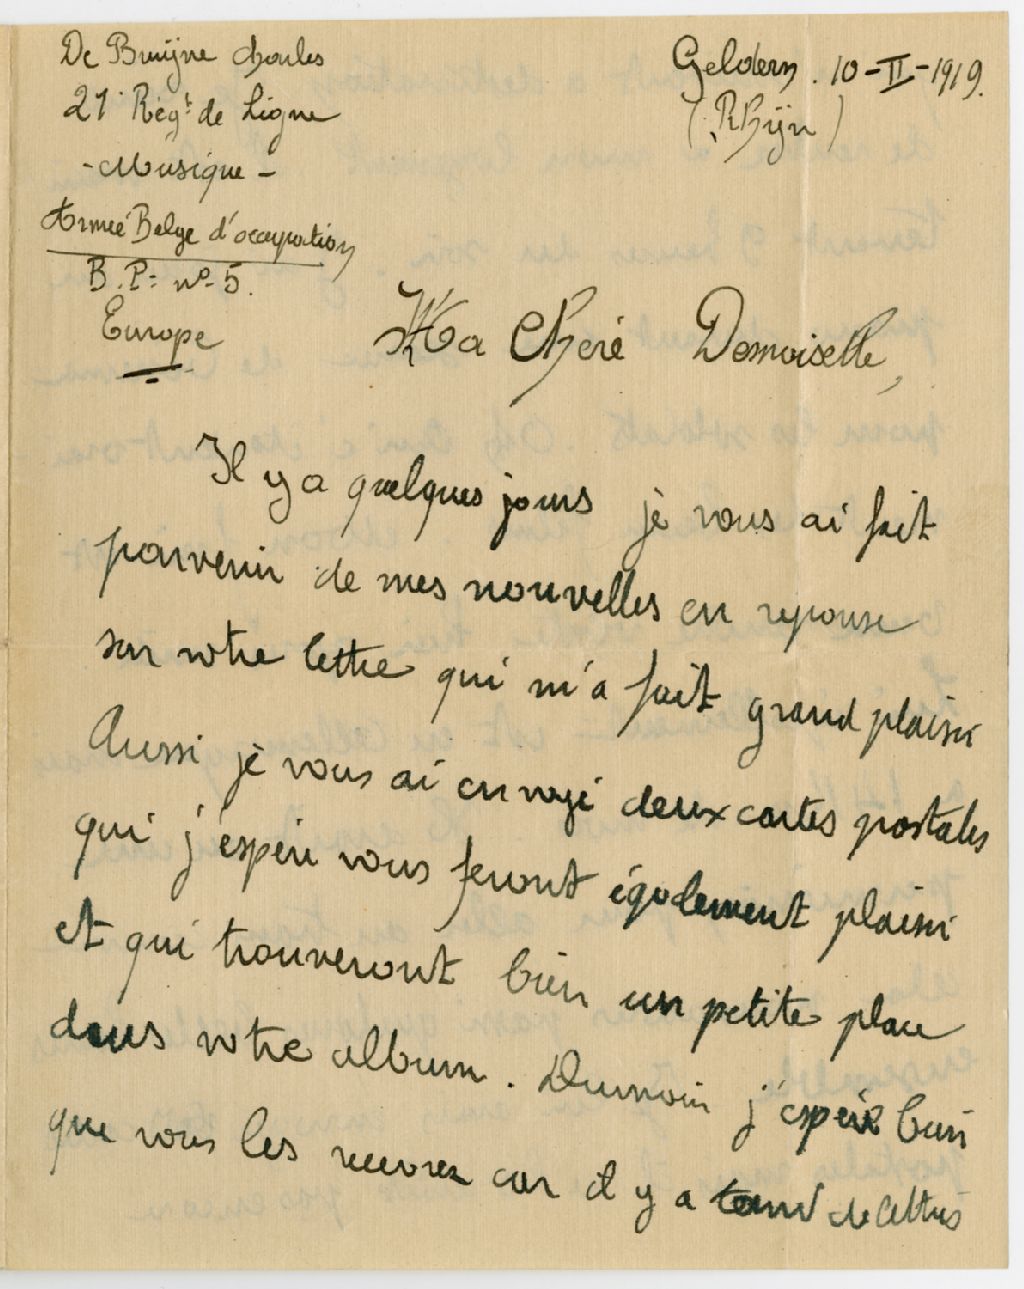 De Bruÿne Charles
21e Régt de Ligne
- Musique -
Armeé Belge d'occupation
B.P: no 5.
Europe
Geldern. 10-II-1919.
(Rhÿn)
Ma Cheré Demoiselle,
Il y a quelques jours je vous ai fait
parvenir de mes nouvelles en reponse
sur votre lettre qui m'a fait grand plaisir
Aussi je vous ai envoyé deux cartes postales
qui j'espere vous feront également plaisir
et qui trouveront bien un petite place
dans votre album. Dumoin j'espére bien
que vous les recevrez car il y a tant de lettres